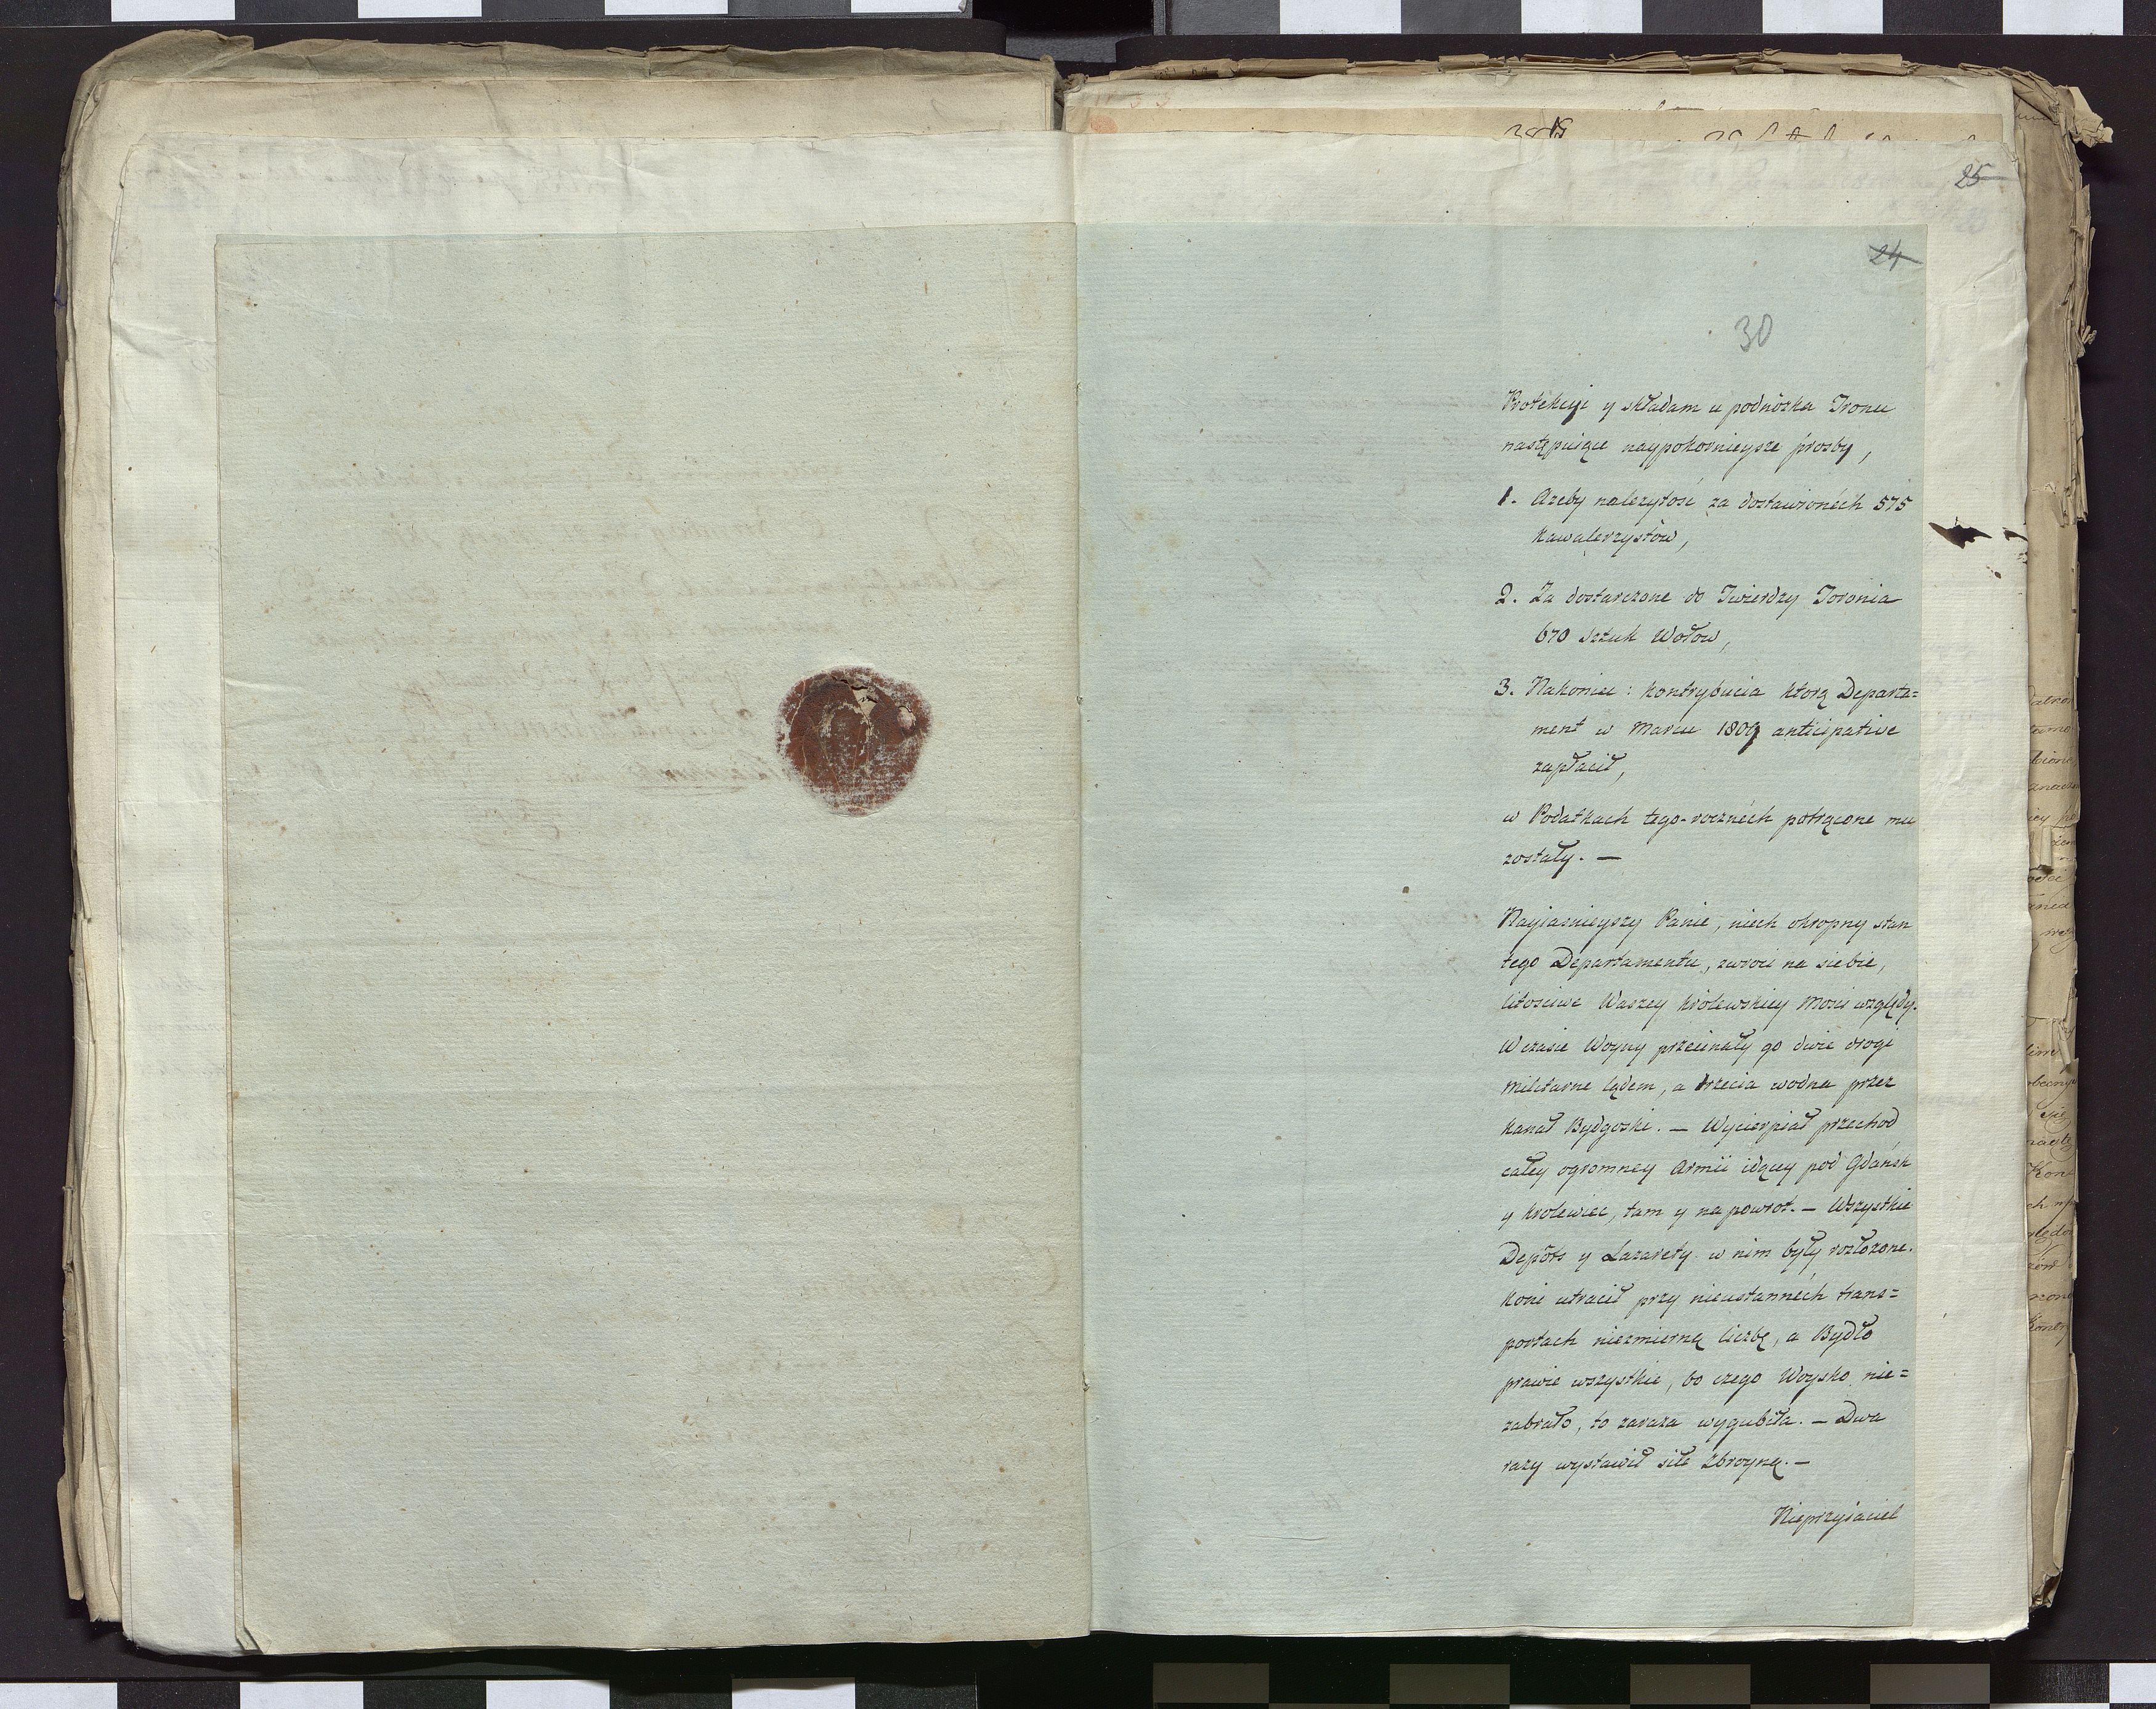 25
24
30
Protekcyi y składam u podnòżka Tronu
następuiące naypokornieysze prosby,
1. Azeby nalezytość za dostawionéch 575
kawalerzystów,
2. Za dostarczone do Twierdzy Torunia
670 sztuk Wołow,
3. Nakoniec: kontrybucia ktorą Departa=
ment w Marcu 1809 anticipative
zapłacił,
w Podatkach tego-rocznéch potrącone mu
zostały. —
Nayjasnieyszy Panie, niech okropny stan
tego Departamentu, zwroci na siebie,
litosciwe Waszey królewskiey Mosci względy.
W czasie Woyny przecinały go dwie drogi
militarne lądem, a trzecia wodna przez
kanał Bydgoski. — Wycierpiał przechod
całey ogromney Armii idącey pod Gdańsk
y krolewiec, tam y na powrot. — Wszystkie
Depôts y Lazarety w nim były rozłozone.
Koni utracił przy nieustannéch trans=
portach niezmierną liczbę, a Bydło
prawie wszystkie, bo czego Woysko nie=
zabrało, to zaraza wygubiła. — Dwa
razy wystawił siłę zbroyną. —
Nieprzyiaciel